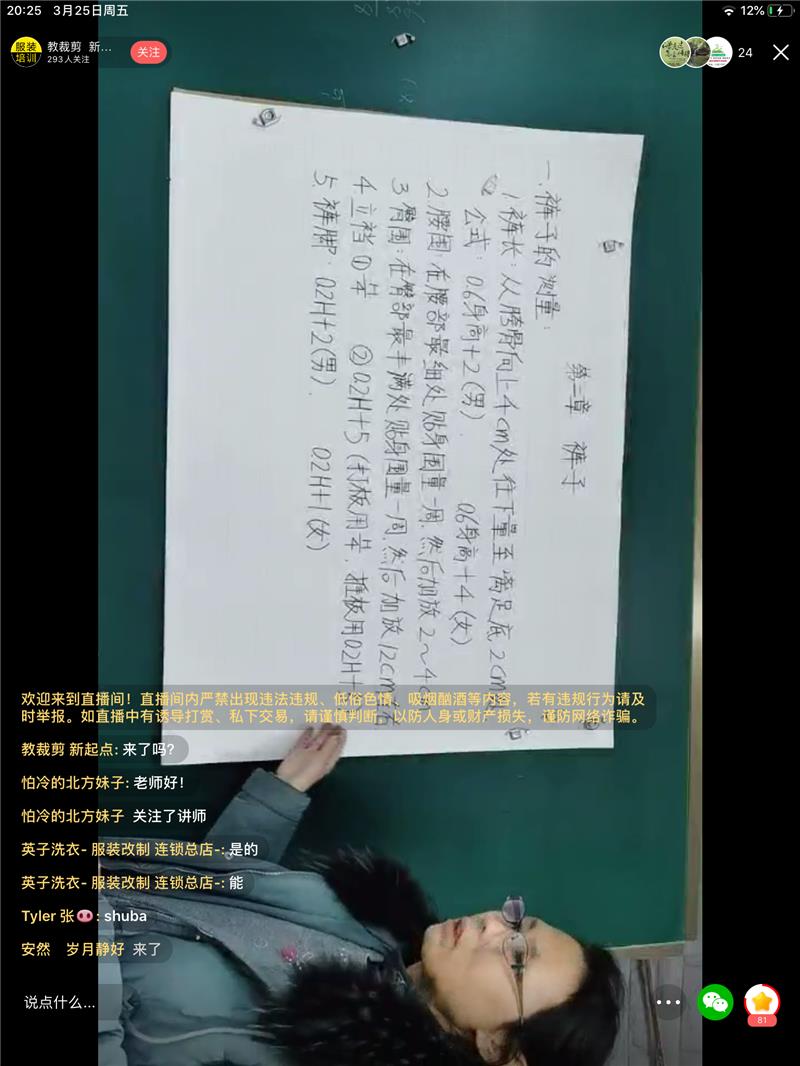 20:25 3月25日周五
12%
服装
培训
教裁剪 新...
293人关注
关注
24
第二章 裤子
一.裤子的测量:
1.裤长:从胯骨向上4cm处往下量至离足底2cm
公式:0.6身高+2(男). 0.6身高+4(女)
2.腰围:在腰部最细处贴身围量一周.然后加放2~4c
3.臀围:在臀部最丰满处贴身围量一周.然后加放12cm
4.立裆 ① ②0.2H+5(打板用 .推板用0.2H+
5.裤脚:0.2H+2(男). 0.2H+1(女)
欢迎来到直播间!直播间内严禁出现违法违规、低俗色情、吸烟酗酒等内容,若有违规行为请及
时举报。如直播中有诱导打赏、私下交易,请谨慎判断,以防人身或财产损失,谨防网络诈骗。
教裁剪 新起点: 来了吗?
怕冷的北方妹子: 老师好!
怕冷的北方妹子 关注了讲师
英子洗衣- 服装改制 连锁总店-: 是的
英子洗衣- 服装改制 连锁总店-: 能
Tyler 张🐽: shuba
安然 岁月静好 来了
说点什么...
81